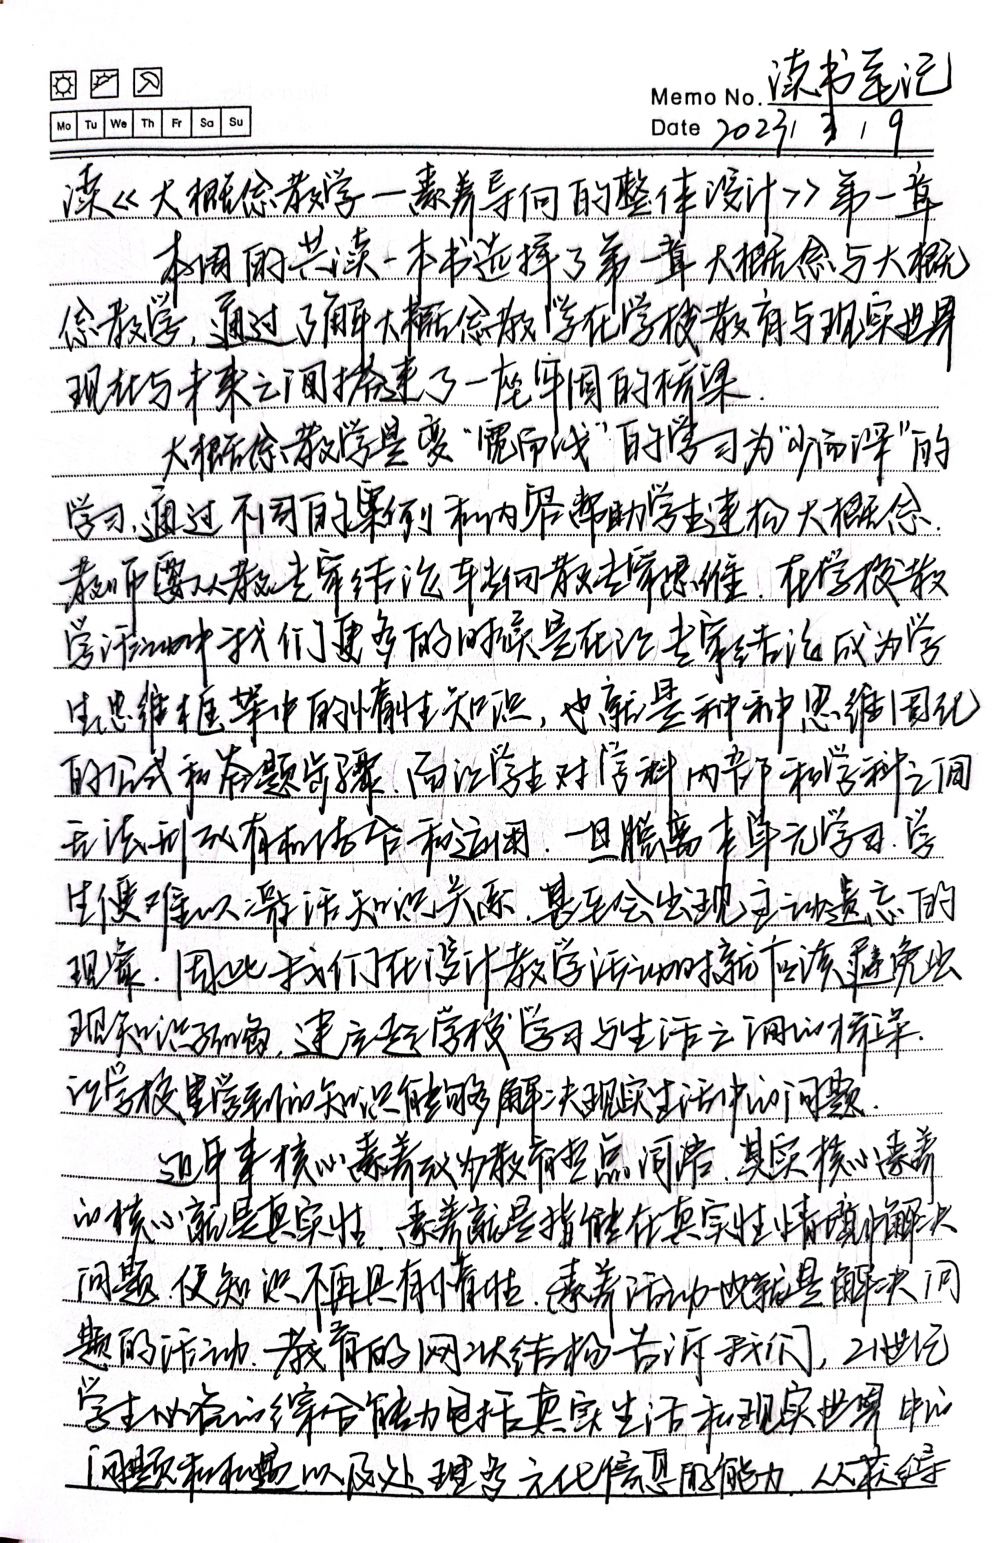 Memo No. 读书笔记
Mo Tu We Th Fr Sa Su
Date 2023 / 3 / 9
读《大概念教学—素养导向的整体设计》第一章
本周的共读一本书选择了第一章大概念与大概
念教学，通过了解大概念教学在学校教育与现实世界
现在与未来之间搭建了一座牢固的桥梁.
大概念教学是变“宽而浅”的学习为“少而深”的
学习，通过不同的案例和内容帮助学生建构大概念.
教师要从教专家结论转向教专家思维. 在学校教
学活动中我们更多的时候是在让专家结论成为学
生思维框架中的惰性知识，也就是种种思维固化
的公式和答题步骤. 而让学生对学科内部和学科之间
无法形成有机结合和运用. 一旦脱离本单元学习. 学
生便难以激活知识关系. 甚至会出现主动遗忘的
现象. 因此我们在设计教学活动时就应该避免出
现知识, 建立起学校学习与生活之间的桥梁.
让学校里学到的知识能够解决现实生活中的问题.
近年来核心素养成为教育热点词语. 其实核心素养
的核心就是真实性. 素养就是指能在真实性情境中解决
问题. 使知识不再具有惰性. 素养活动也就是解决问
题的活动. 教育的网状结构告诉我们，21世纪
学生必备的综合能力包括真实生活和现实世界中的
问题和机遇以及处理多元化信息的能力. 从获得